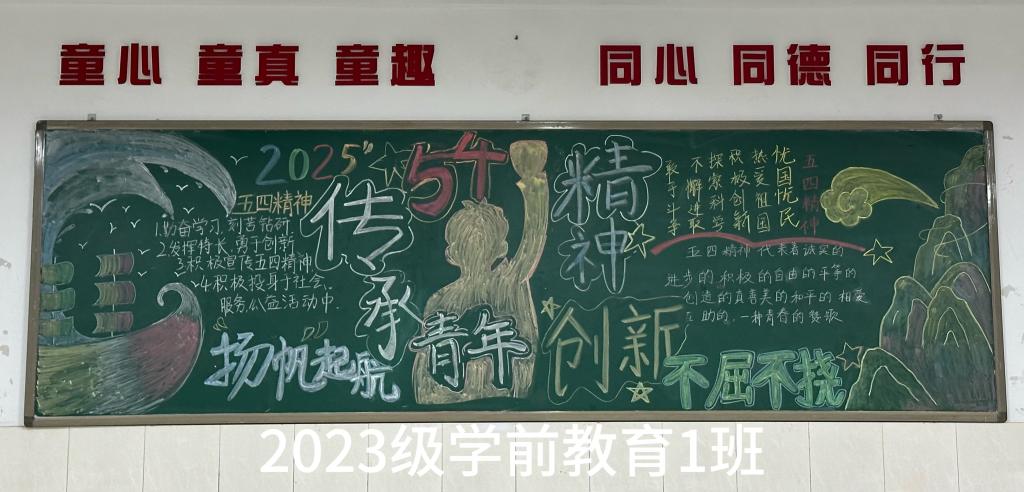 童心 童真 童趣
同心 同德 同行
2025"
54
精神
传承
五四精神
1.勤奋学习,刻苦钻研
2.发挥特长,勇于创新
3.积极宣传五四精神
4.积极投身于社会、
服务公益活动中.
扬帆起航
青年
创新
不屈不挠
五四精神
优国忧民
热爱祖国
积极创新
探索科学
不懈进取
敢于斗争
五四精神代表着诚实的
进步的积极的自由的平等的
创造的真善美的和平的相爱
互助的,一种青春的赞歌
2023级学前教育1班